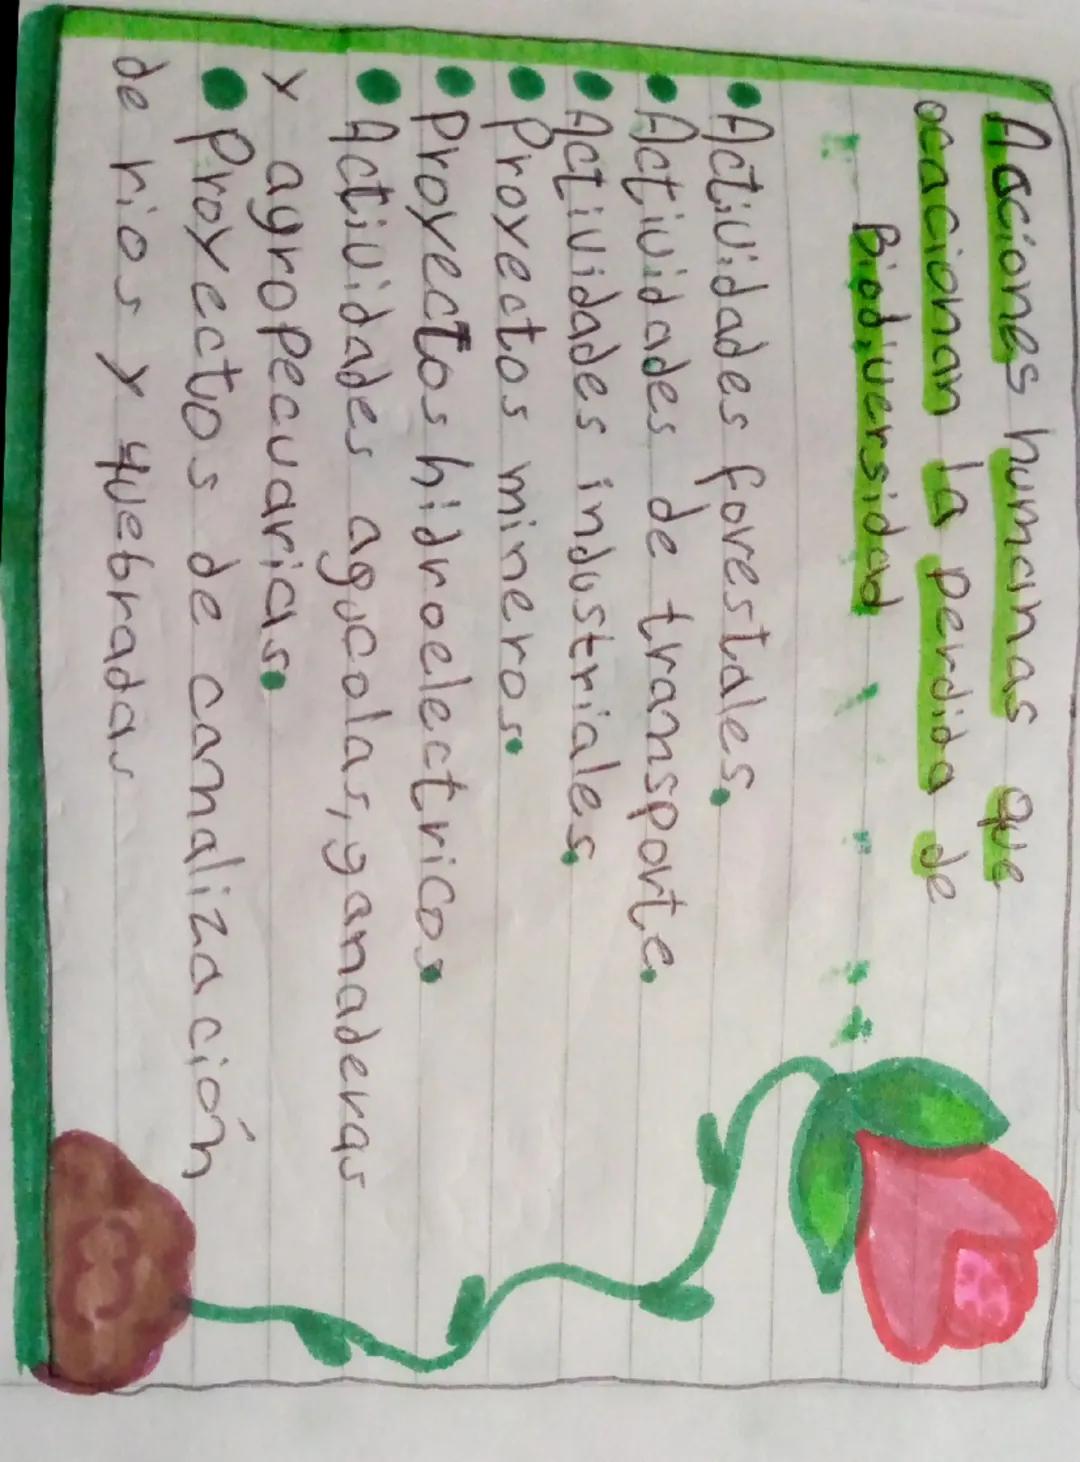 Acciones humanas que
ocacionan la perdida de
Biodiversidad
• Actividades forestales.
• Actividades de transporte.
• Actividades industriales.
• Proyectos mineros.
• Proyectos hidroelectricos.
• Actividades agricolas, ganaderas
y agropecuarias.
• Proyectos de canalización
de rios y quebradas